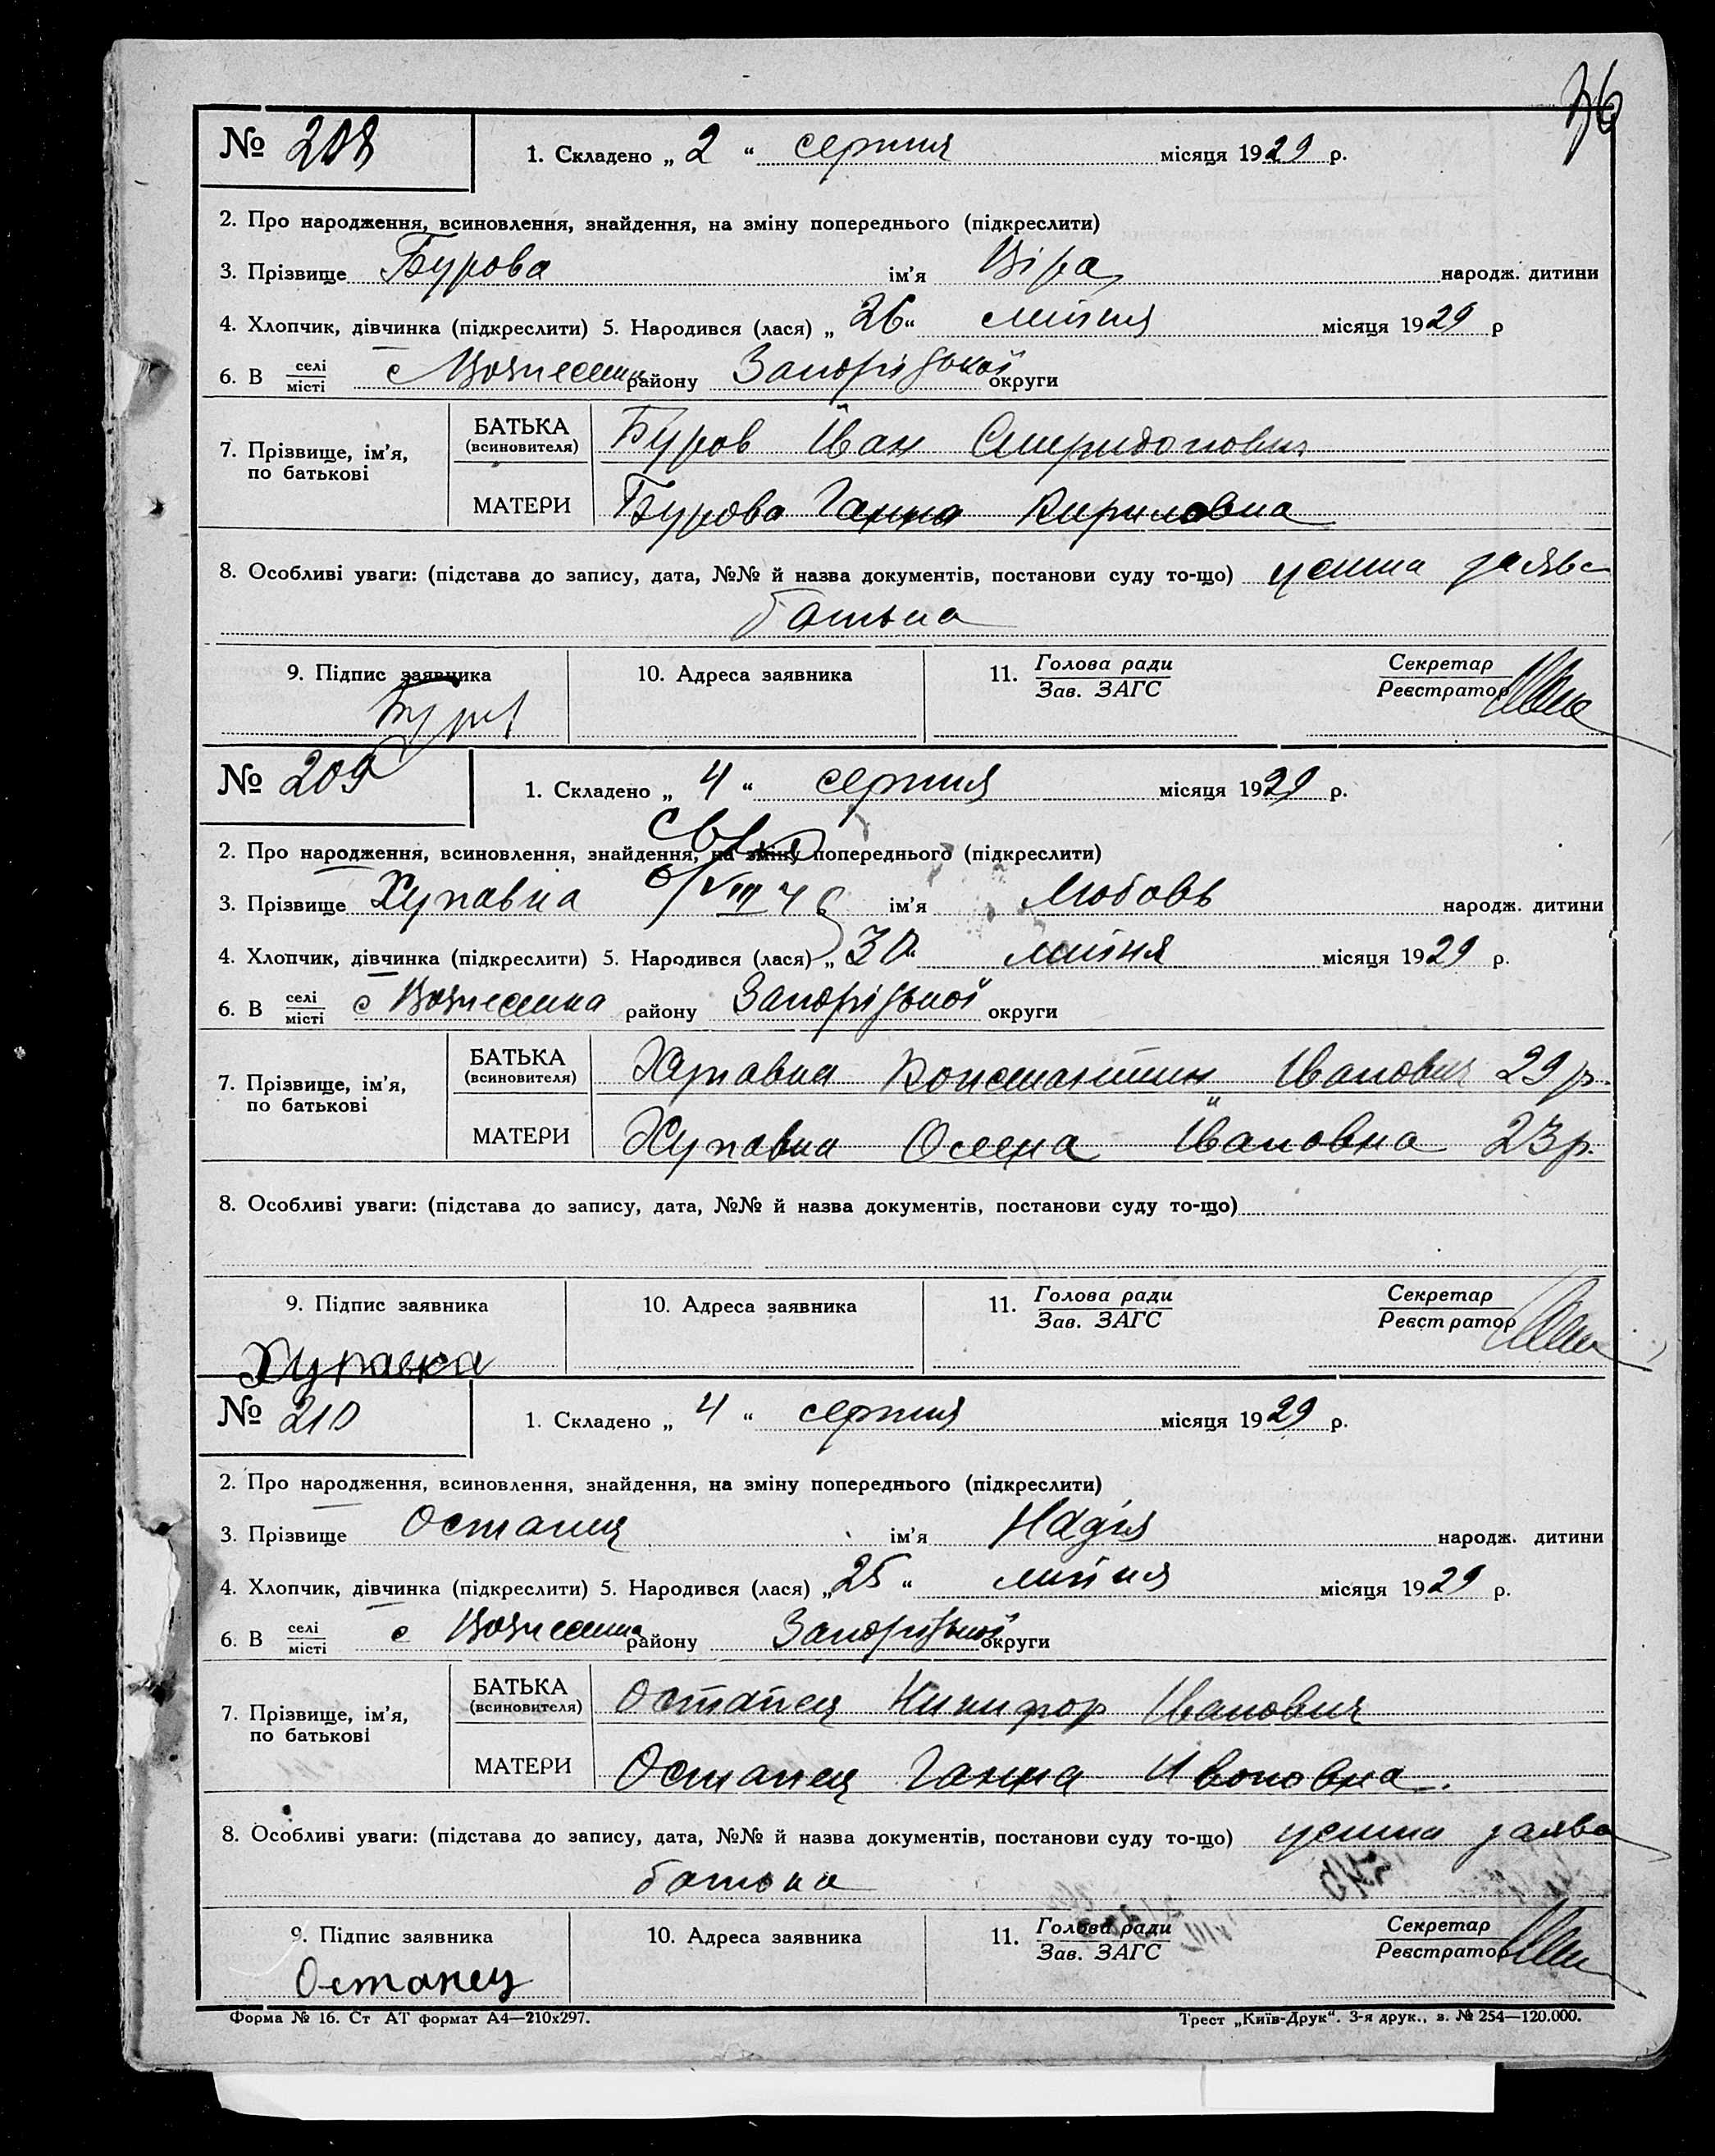 36
№ 208
1. Складено „ 2 “ серпня місяця 1929 р.
2. Про народження, всиновлення, знайдення, на зміну попереднього (підкреслити)
3. Прізвище Бурова ім'я Віра народж. дитини
4. Хлопчик, дівчинка (підкреслити) 5. Народився (лася) „ 26 “ липня місяця 1929 р
6. В селі/місті с Вознесенка району Запорізької округи
7. Прізвище, ім'я, по батькові
БАТЬКА (всиновителя) Буров Іван Спиридонович
МАТЕРИ Бурова Ганна Кириловна
8. Особливі уваги: (підстава до запису, дата, №№ й назва документів, постанови суду то-що) усина заява
батька
9. Підпис заявника 10. Адреса заявника 11. Голова ради/Зав. ЗАГС Секретар/Реєстратор
№ 209
1. Складено „ 4 “ серпня місяця 1929 р.
2. Про народження, всиновлення, знайдення, на зміну попереднього (підкреслити)
3. Прізвище Хупавка 6/VIII 46 ім'я Любовь народж. дитини
4. Хлопчик, дівчинка (підкреслити) 5. Народився (лася) „ 30 “ липня місяця 1929 р.
6. В селі/місті с Вознесенка району Запорізької округи
7. Прізвище, ім'я, по батькові
БАТЬКА (всиновителя) Хупавка Константин Іванович 29 р.
МАТЕРИ Хупавка Олена Івановна 23 р.
8. Особливі уваги: (підстава до запису, дата, №№ й назва документів, постанови суду то-що)
9. Підпис заявника 10. Адреса заявника 11. Голова ради/Зав. ЗАГС Секретар/Реєстратор
Хупавка
№ 210
1. Складено „ 4 “ серпня місяця 1929 р.
2. Про народження, всиновлення, знайдення, на зміну попереднього (підкреслити)
3. Прізвище Остапец ім'я Надія народж. дитини
4. Хлопчик, дівчинка (підкреслити) 5. Народився (лася) „ 25 “ липня місяця 1929 р.
6. В селі/місті с Вознесенка району Запорізької округи
7. Прізвище, ім'я, по батькові
БАТЬКА (всиновителя) Остапец Никифор Иванович
МАТЕРИ Остапец Ганна Ивановна.
8. Особливі уваги: (підстава до запису, дата, №№ й назва документів, постанови суду то-що) усина заява
батька
9. Підпис заявника 10. Адреса заявника 11. Голова ради/Зав. ЗАГС Секретар/Реєстратор
Остапец
Форма № 16. Ст АТ формат А4—210х297. Трест „Київ-Друк“. 3-я друк., з. № 254—120.000.